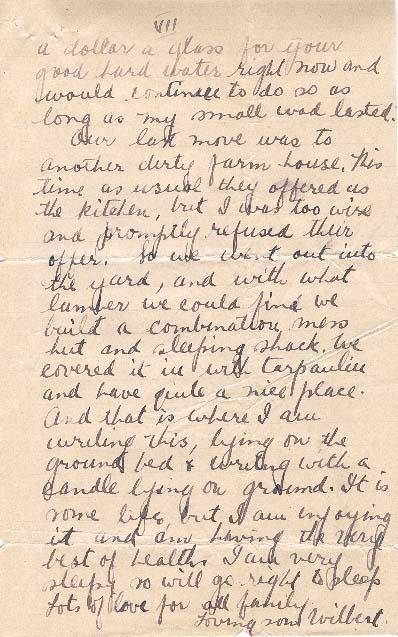 VII
a dollar a glass for your
good hard water right now and
would continue to do so as
long as my small wad lasted.
Our last move was to
another dirty farm house. This
time as usual they offered us
the kitchen, but I was too wise
and promptly refused their
offer. So we went out into
the yard, and with what
lumber we could find we
build a combination mess
hut and sleeping shack. We
covered it in with tarpaulin
and have quite a nice place.
And that is where I am
writing this, lying on the
ground bed & writing with a
candle lying on ground. It is
some life, but I am injoying
it and am having the very
best of health. I am very
sleepy so will go right to sleep
Lots of love for all family
Loving son Wilbert.